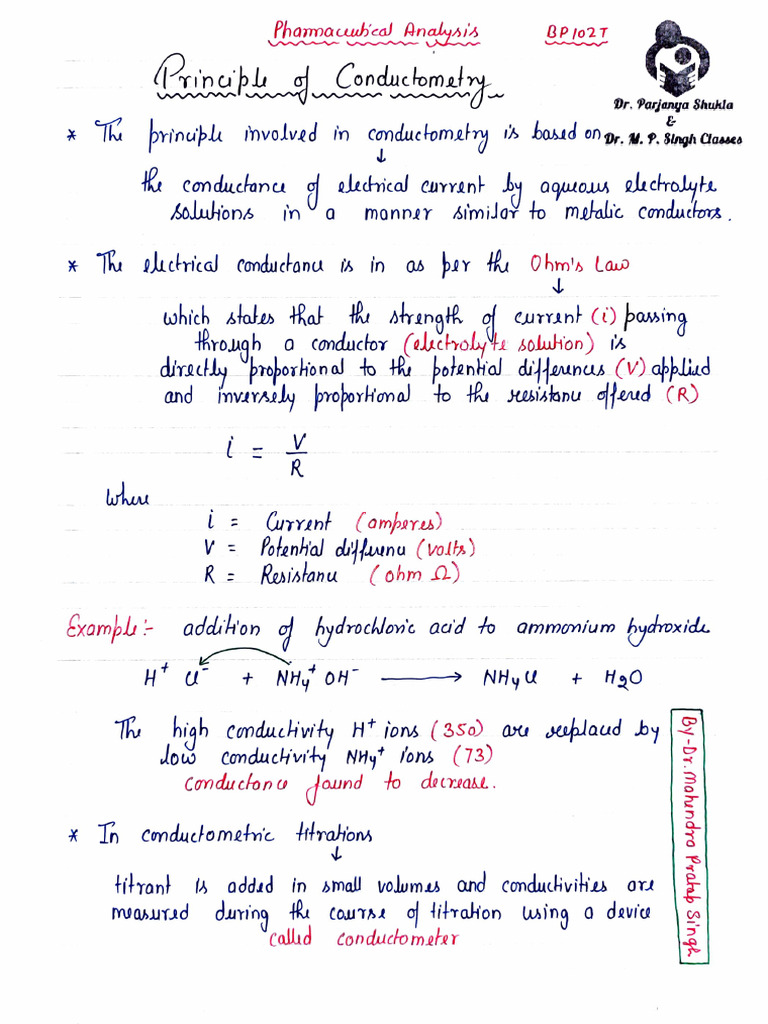 Pharmaceutical Analysis BP102T
Principle of Conductometry
Dr. Parjanya Shukla
&
Dr. M. P. Singh Classes
* The principle involved in conductometry is based on
↓
the conductance of electrical current by aqueous electrolyte
solutions in a manner similar to metalic conductors.
* The electrical conductance is in as per the Ohm's Law
↓
which states that the strength of current (i) passing
through a conductor (electrolyte solution) is
directly proportional to the potential differences (V) applied
and inversely proportional to the resistance offered (R)
i = V/R
where
i = Current (amperes)
V = Potential difference (volts)
R = Resistance (ohm Ω)
Example:- addition of hydrochloric acid to ammonium hydroxide
H⁺ Cl⁻ + NH₄⁺ OH⁻ → NH₄Cl + H₂O
The high conductivity H⁺ ions (350) are replaced by
low conductivity NH₄⁺ ions (73)
conductance found to decrease.
* In conductometric titrations
↓
titrant is added in small volumes and conductivities are
measured during the course of titration using a device
called conductometer
By-Dr. Mahendra Pratap Singh